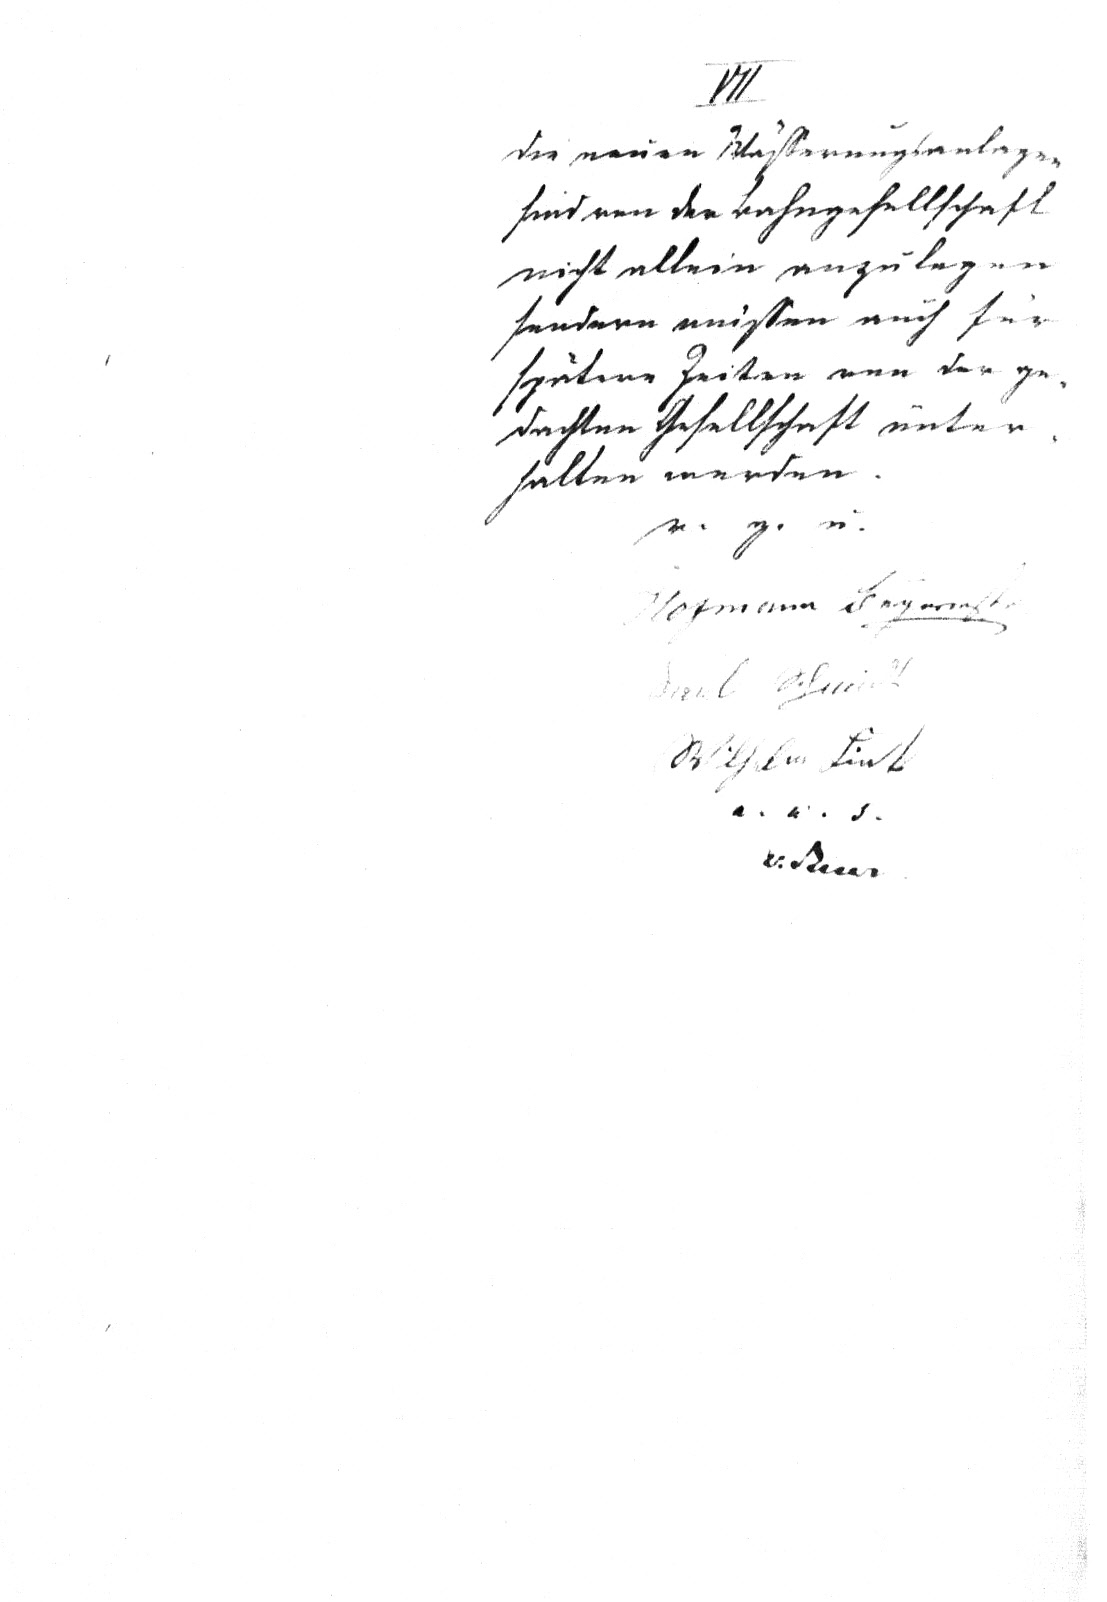 VII
die neuen Wässerungsanlagen
sind von der Bahngesellschaft
nicht allein anzulegen
sondern müssen auch für
spätere Zeiten von der ge-
dachten Gesellschaft unter-
halten werden.
v. g. u.
Hofmann
Schmidt
Wilhelm
a. u. s.